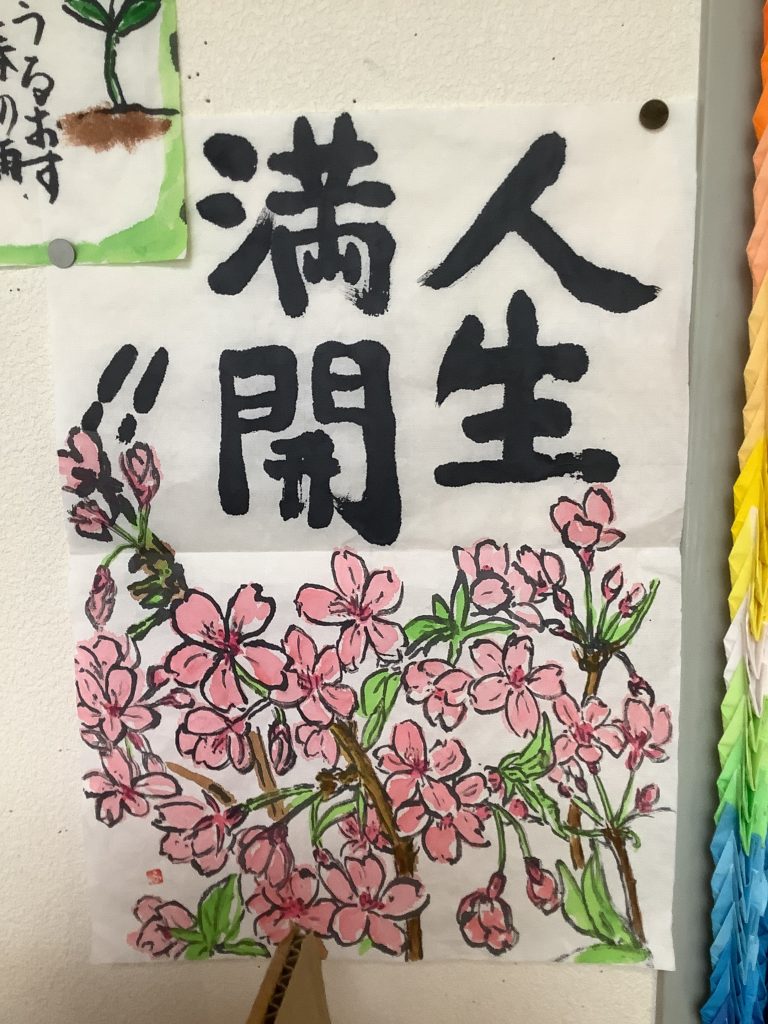 人生
満開!!
うるおす
春の雨